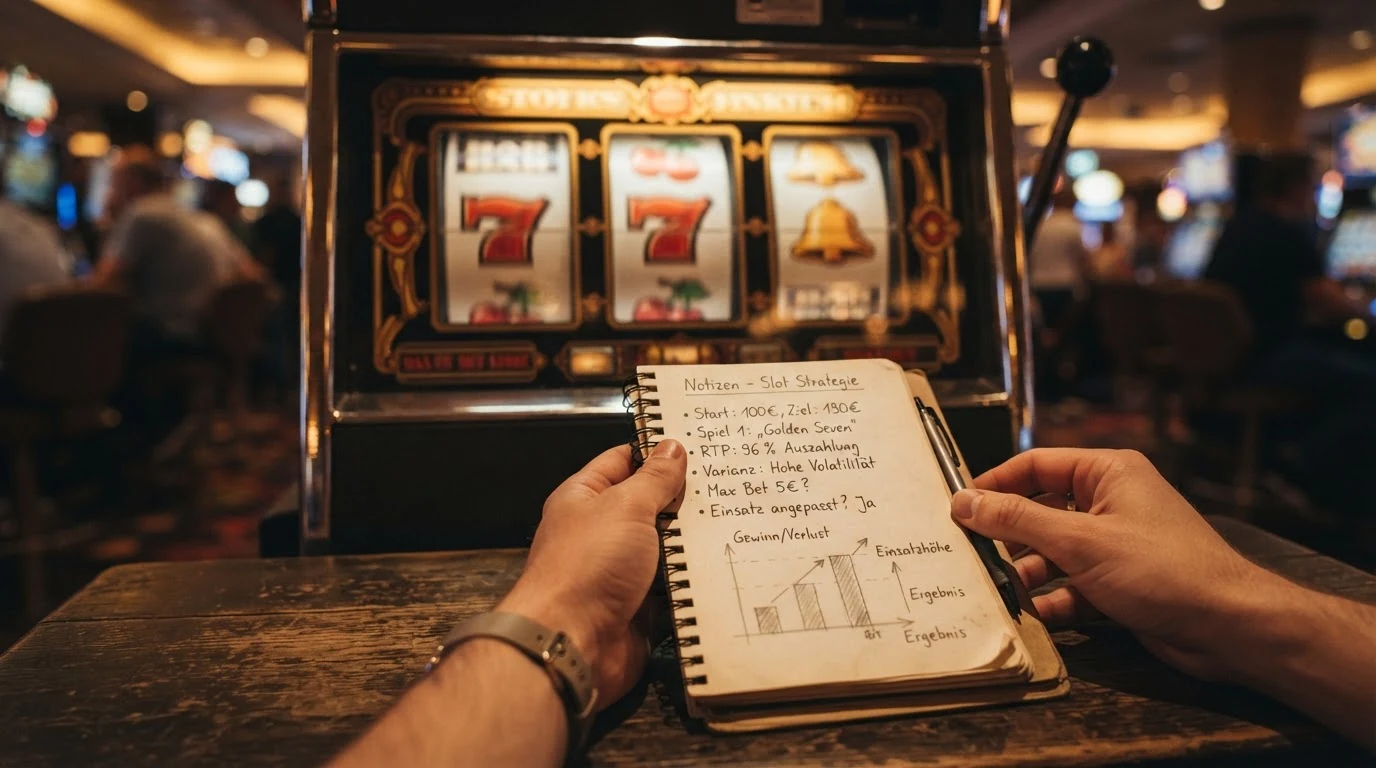 Notizen – Slot Strategie
• Start: 100€, Ziel: 190€
• Spiel 1: „Golden Seven“
• RTP: 96 % Auszahlung
• Varianz: Hohe Volatilität
• Max Bet 5€?
• Einsatz angepasst? Ja
Gewinn/Verlust
Einsatzhöhe
Ergebnis
Ergebnis
7 7